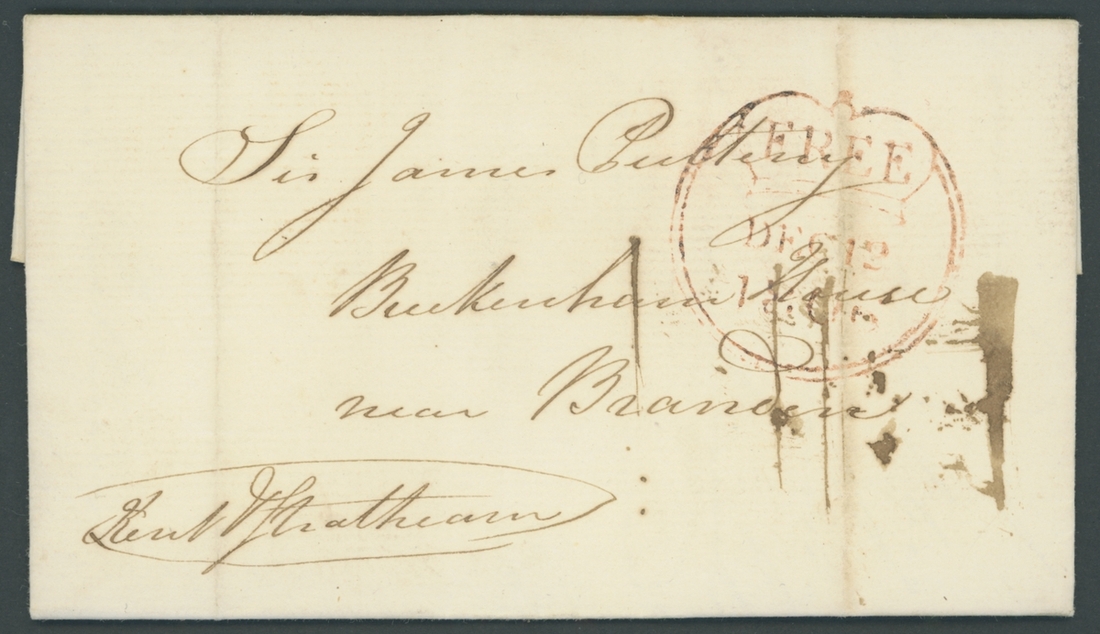 Sir James Pulteney
FREE
DEC 12
Buckenham House
near Brandon
Kent & Strathearn